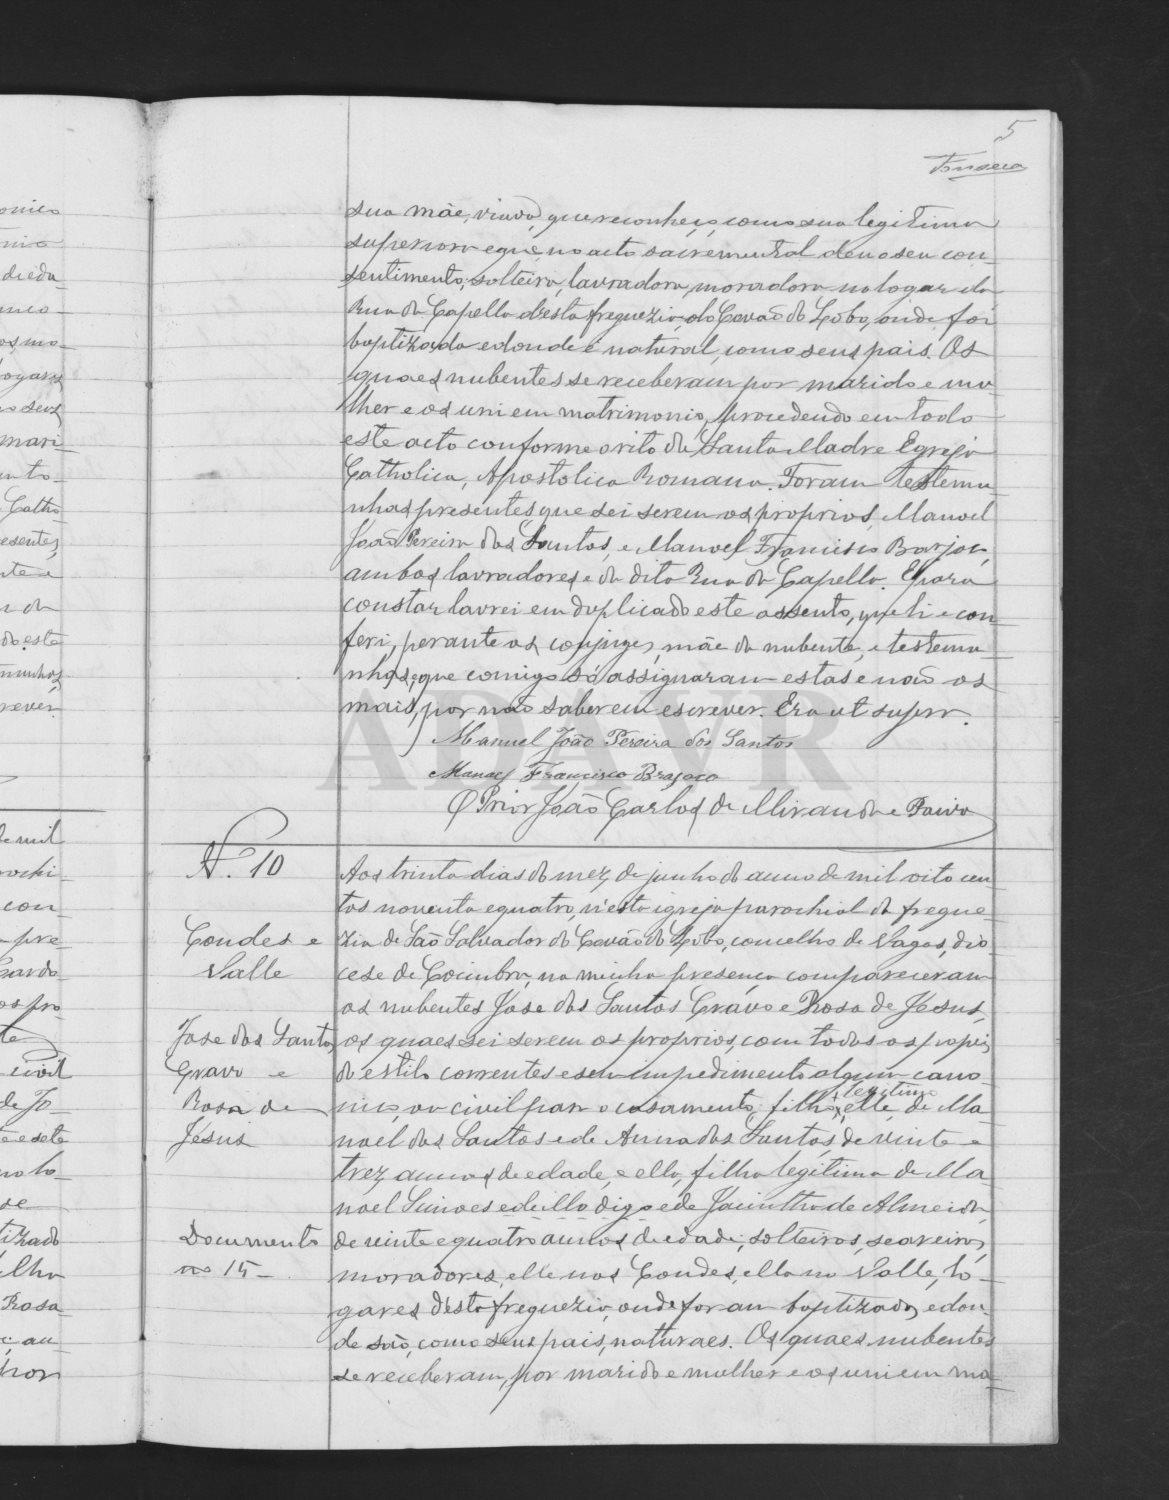 5
Fonseca
sua mãe, viuva, que reconheço como sua legitima
superiora e que no acto sacremental deu o seu con-
sentimento, solteira, lavradora, moradora no logar da
Rua da Capella d'esta freguezia do Covão do Lobo, onde foi
baptizada e donde é natural, como seus pais. Os
quaes nubentes se receberam por marido e mu-
lher e os uni em matrimonio, procedendo em todo
este acto conforme o rito da Santa Madre Egreja
Catholica, Apostolica Romana. Foram testemu-
nhas presentes que sei serem os proprios, Manoel
João Pereira dos Santos, e Manoel Francisco
ambos lavradores e da dita Rua da Capella. E para
constar lavrei em duplicado este assento, que li e con-
feri, perante os conjuges, mãe da nubente, e testemu-
nhas, que comigo só assignaram estas e não os
mais, por não saberem escrever. Era ut supra.
Manuel João Pereira dos Santos
Manoel Francisco
O Prior João Carlos de Miranda e Paiva
N.º 10
Condes e
Valle
Jose dos Santos
Gravo e
Rosa de
Jesus
Documento
nº 15-
Aos trinta dias do mez de junho do anno de mil oito cen-
tos noventa e quatro, n'esta igreja parochial da fregue-
zia de São Salvador do Covão do Lobo, concelho de Vagos, dio-
cese de Coimbra, na minha presença compareceram
os nubentes Jose dos Santos Gravo e Rosa de Jesus,
os quaes sei serem os proprios, com todos os papeis
do estilo correntes e sem impedimento algum cano-
nico, ou civil para o casamento; filho legitimo, elle, de Ma-
noel dos Santos e de Anna dos Santos, de vinte e
trez annos de edade, e ella, filha legitima de Ma-
noel Simoes e de illa digo e de Jacintha de Almeida,
de vinte e quatro annos de edade, solteiros, seareiros,
moradores, elle nos Condes, ella no Valle, lo-
gares d'esta freguezia, onde foram baptizados, e don-
de são, como seus pais, naturaes. Os quaes nubentes
se receberam, por marido e mulher e os uni em ma-
ADAVR